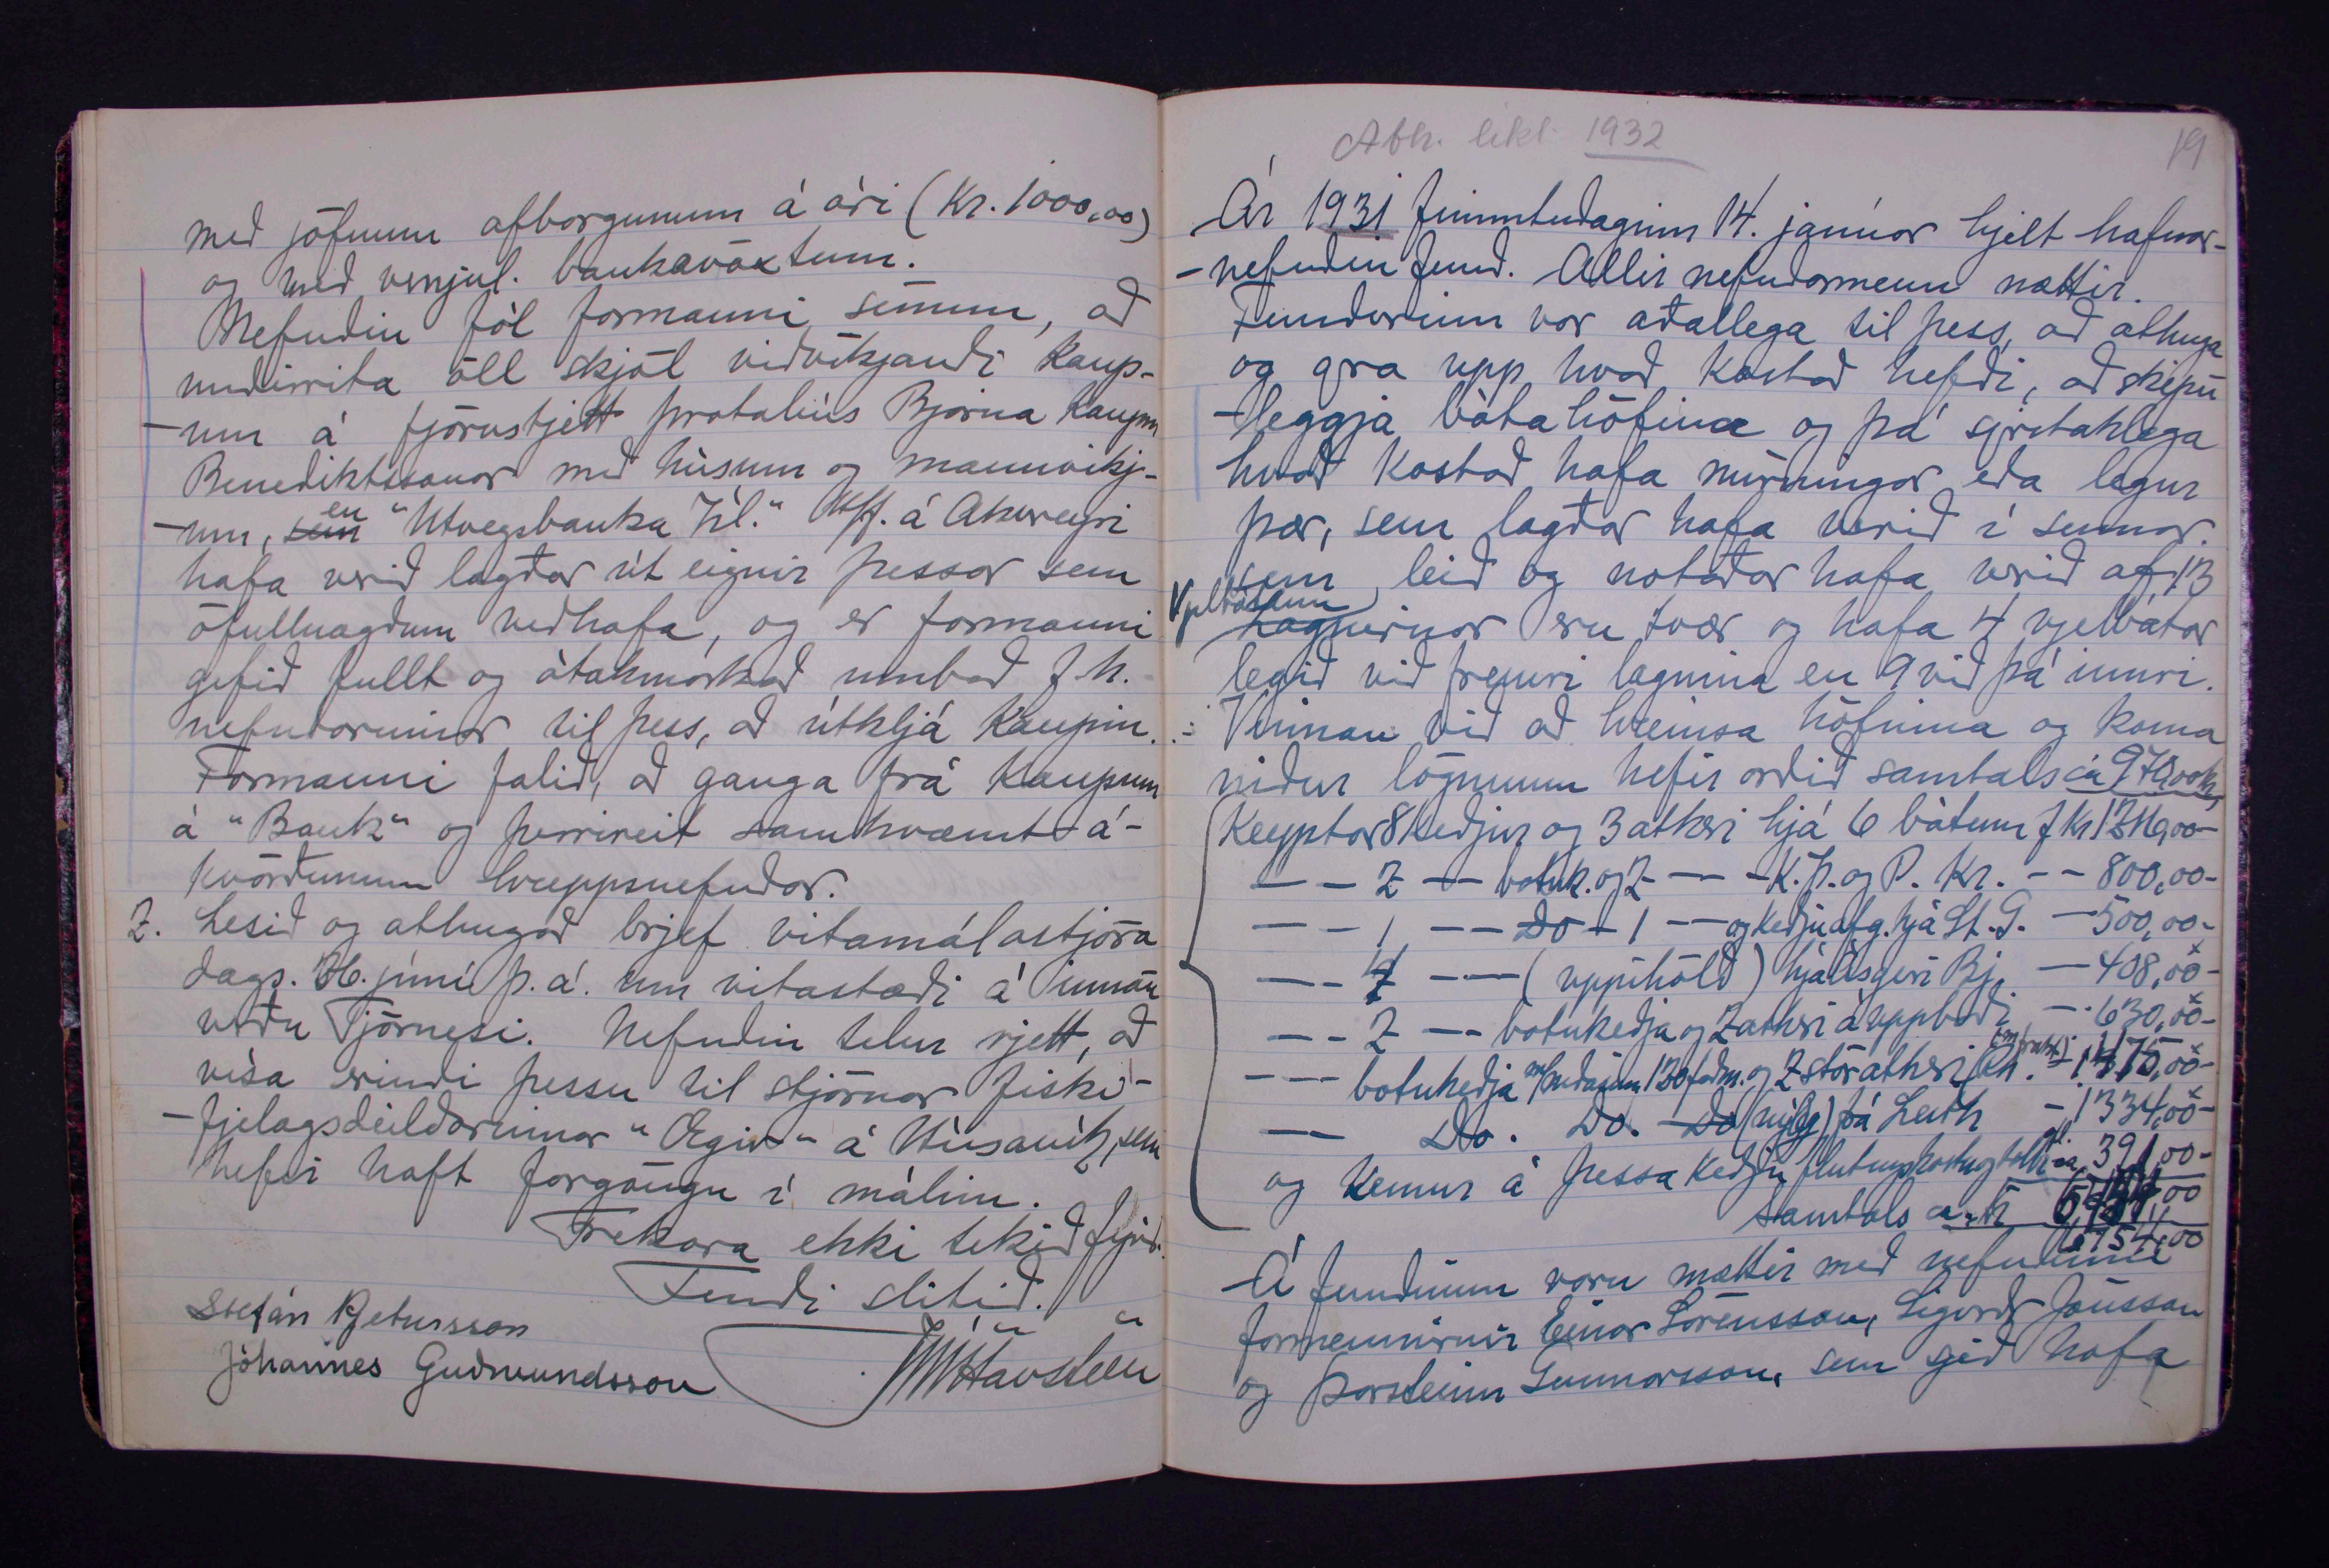 með jöfnum afborgunum á ári (Kr. 1000,00)
og með venjul. bankavöxtum.
Nefndin fól formanni sínum, að
undirrita öll skjöl viðvíkjandi kaup-
-um á fjörustjett þrotabús Bjarna kaupm
Benediktssonar með húsum og mannvirkj-
-um, en "Utvegsbanka Ísl." H/f. á Akureyri
hafa verið lagðar út eignir þessar sem
ófullnægðum veðhafa, og er formanni
gefið fullt og ótakmarkað umboð f.h.
nefndarinnar til þess, að útkljá kaupin.
Formanni falið, að ganga frá kaupum
á "Bauk" og þurrireit samkvæmt á-
kvörðunum hreppsnefndar.
2. Lesið og athugað brjef vitamálastjóra
dags. 26. júní þ.á. um vitastæði á innan
verðu Tjörnesi. Nefndin telur rjett, að
vísa erindi þessu til stjórnar fiski-
-fjelagsdeildarinnar "Ægir" á Húsavík, sem
hefir haft forgöngu í málinu.
Frekara ekki tekið fyrir.
Fundi slitið.
Stefán Pjetursson
Jóhannes Guðmundsson
JHavsteen
Ath. líkl. 1932
19
Ár 1931 fimmtudaginn 14. janúar hjelt hafnar-
-nefndin fund. Allir nefndarmenn mættir.
Fundurinn var aðallega til þess, að athuga
og gera upp hvað kostað hefði, að skipu
-leggja bátahöfina og þá sjerstaklega
hvað kostað hafa múrningar eða legur
þær, sem lagðar hafa verið í sumar.
sem leið og notaðar hafa verið af 13
vjelbátum
Lagnirnar eru tvær og hafa 4 vjelbátar
legið við fremri lagnina en 9 við þá innri.
Vinnan við að hreinsa höfnina og koma
niður lögnunum hefir orðið samtals ca 970,00 kr,
Keyptar 8 keðjur og 3 atkeri hjá 6 bátum f kr 1216,00-
— - 2 — botnk. og 2 — - K.Þ. og P. Kr. - - 800,00-
— - 1 — Do - 1 — og keðjuafg. hjá St. G. — 500,00-
— - — (uppihöld) hjá Ásgeiri Bj. — 408,00-
— - 2 — botnkeðja og 2 atkeri á uppboði — 630,00-
— - botnkeðja 120 faðm. og 2 stór atkeri - 1475,00-
— Do. Do. frá Leith - 1334,00-
og kemur á þessa keðju flutningskostn og tollur ca 391,00-
Samtals ca. kr
6754,00
Á fundinum voru mættir með nefndinni
formennirnir Einar Sörensson, Sigurðr Jónsson
og Þorsteinn Gunnarsson, sem sjeð hafa